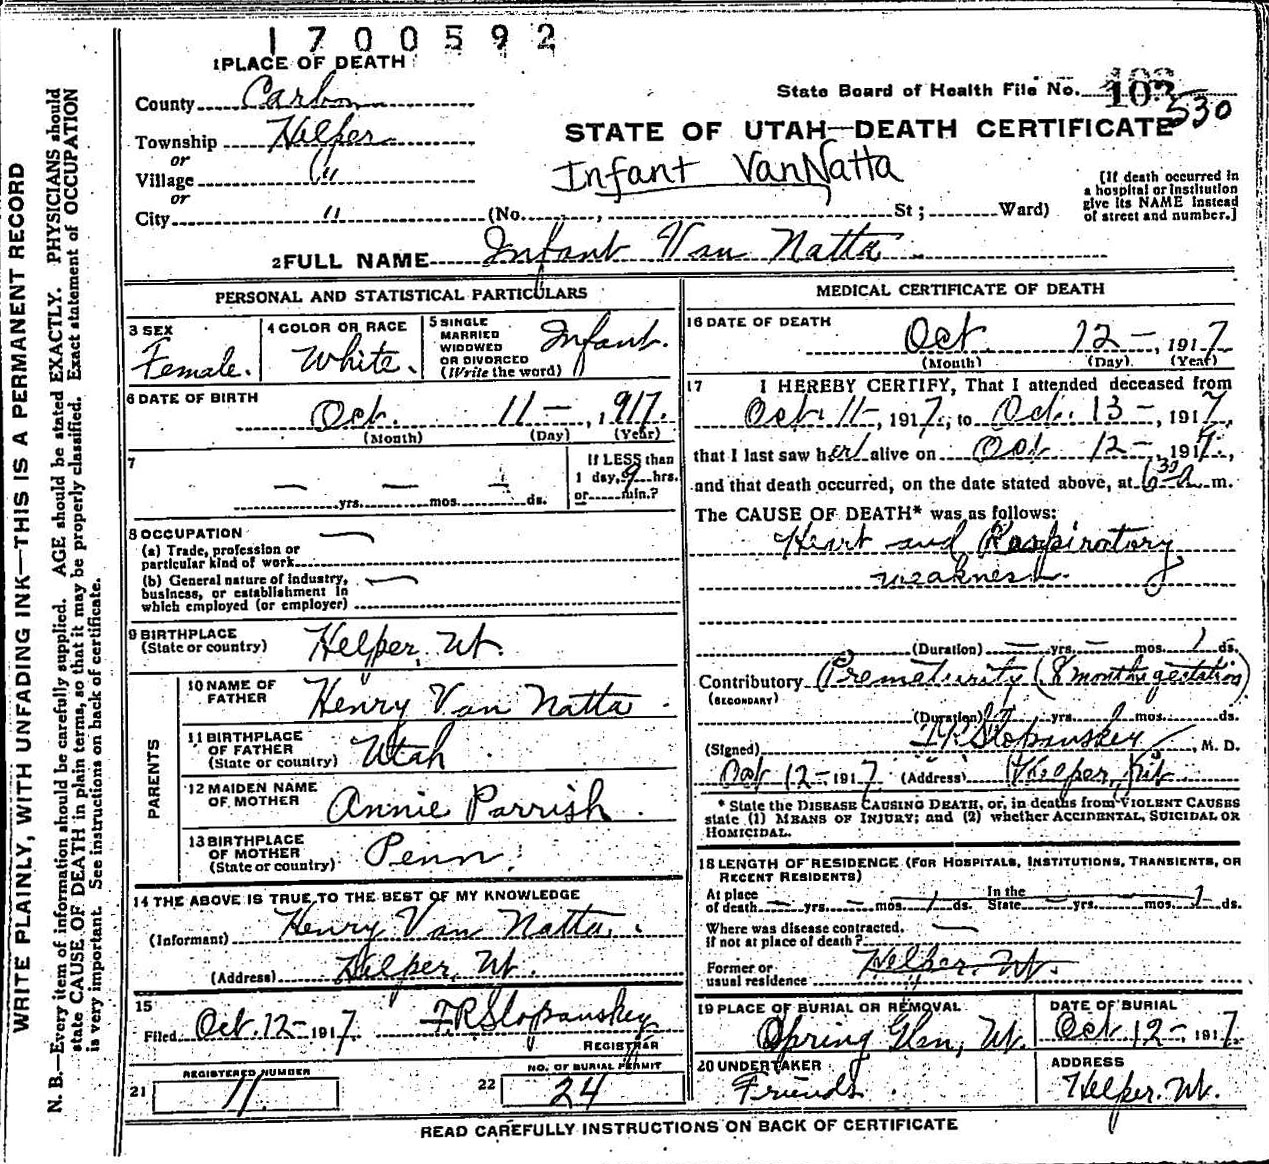 1700592
1 PLACE OF DEATH
County Carbon
Township Helper
or
Village "
or
City " (No. , St ; Ward)
State Board of Health File No. 103
530
STATE OF UTAH—DEATH CERTIFICATE
Infant VanNatta
[If death occurred in
a hospital or institution
give its NAME instead
of street and number.]
2 FULL NAME Infant Van Natta
PERSONAL AND STATISTICAL PARTICULARS
3 SEX
Female.
4 COLOR OR RACE
White.
5 SINGLE
MARRIED
WIDOWED
OR DIVORCED
(Write the word)
Infant.
6 DATE OF BIRTH
Oct. 11— , 1917.
(Month) (Day) (Year)
7
— yrs. — mos. ds.
If LESS than
1 day, 9 hrs.
or min.?
8 OCCUPATION —
(a) Trade, profession or
particular kind of work
(b) General nature of industry,
business, or establishment in
which employed (or employer) —
9 BIRTHPLACE
(State or country)
Helper, Ut.
PARENTS
10 NAME OF
FATHER
Henry Van Natta.
11 BIRTHPLACE
OF FATHER
(State or country)
Utah
12 MAIDEN NAME
OF MOTHER
Annie Parrish.
13 BIRTHPLACE
OF MOTHER
(State or country)
Penn.
14 THE ABOVE IS TRUE TO THE BEST OF MY KNOWLEDGE
(Informant) Henry Van Natta.
(Address) Helper, Ut.
15
Filed Oct. 12— 1917 F.R. Slopanskey
REGISTRAR
21 REGISTERED NUMBER
11.
22 NO. OF BURIAL PERMIT
24
MEDICAL CERTIFICATE OF DEATH
16 DATE OF DEATH
Oct. 12—, 1917
(Month) (Day) (Year)
17 I HEREBY CERTIFY, That I attended deceased from
Oct. 11—, 1917, to Oct. 13—, 1917,
that I last saw her alive on Oct. 12—, 1917,
and that death occurred, on the date stated above, at 6 30 A m.
The CAUSE OF DEATH* was as follows:
Heart and Respiratory
weakness.
(Duration) — yrs. — mos. 1 ds.
Contributory Prematurity (8 months gestation)
(SECONDARY)
(Duration) yrs. mos. ds.
(Signed) F.R. Slopanskey, M. D.
Oct 12— 1917 (Address) Helper, Ut.
* State the DISEASE CAUSING DEATH, or, in deaths from VIOLENT CAUSES
state (1) MEANS OF INJURY; and (2) whether ACCIDENTAL, SUICIDAL OR
HOMICIDAL.
18 LENGTH OF RESIDENCE (FOR HOSPITALS, INSTITUTIONS, TRANSIENTS, OR
RECENT RESIDENTS)
At place
of death — yrs. — mos. 1 ds.
In the
State — yrs. — mos. 1 ds.
Where was disease contracted,
if not at place of death? —
Former or
usual residence Helper, Ut.
19 PLACE OF BURIAL OR REMOVAL
Spring Glen, Ut.
DATE OF BURIAL
Oct. 12—, 1917.
20 UNDERTAKER
Friends.
ADDRESS
Helper. Ut.
READ CAREFULLY INSTRUCTIONS ON BACK OF CERTIFICATE
WRITE PLAINLY, WITH UNFADING INK—THIS IS A PERMANENT RECORD
N. B.—Every item of information should be carefully supplied. AGE should be stated EXACTLY. PHYSICIANS should
state CAUSE OF DEATH in plain terms, so that it may be properly classified. Exact statement of OCCUPATION
is very important. See instructions on back of certificate.